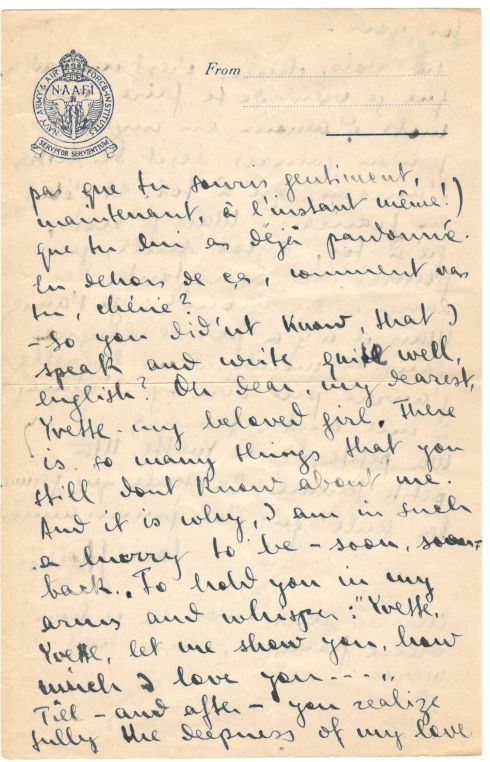 NAVY, ARMY & AIR FORCE INSTITUTES
N·A·A·F·I
SERVITOR SERVIENTIUM
From
pas que tu souris gentiment,
maintenant, à l'instant même!)
que tu lui as déjà pardonné.
En dehors de ça, comment vas
tu, chérie?
- So you did'nt know, that I
speak and write quite well,
english? Oh dear, my dearest,
Yvette - my beloved girl. There
is so many things that you
still dont know about me.
And it is why, I am in such
a hurry to be - soon, soon -
back. To hold you in my
arms and whisper: "Yvette,
Yvette, let me show you, how
much I love you.....
Till - and after - you realize
fully the deepness of my love